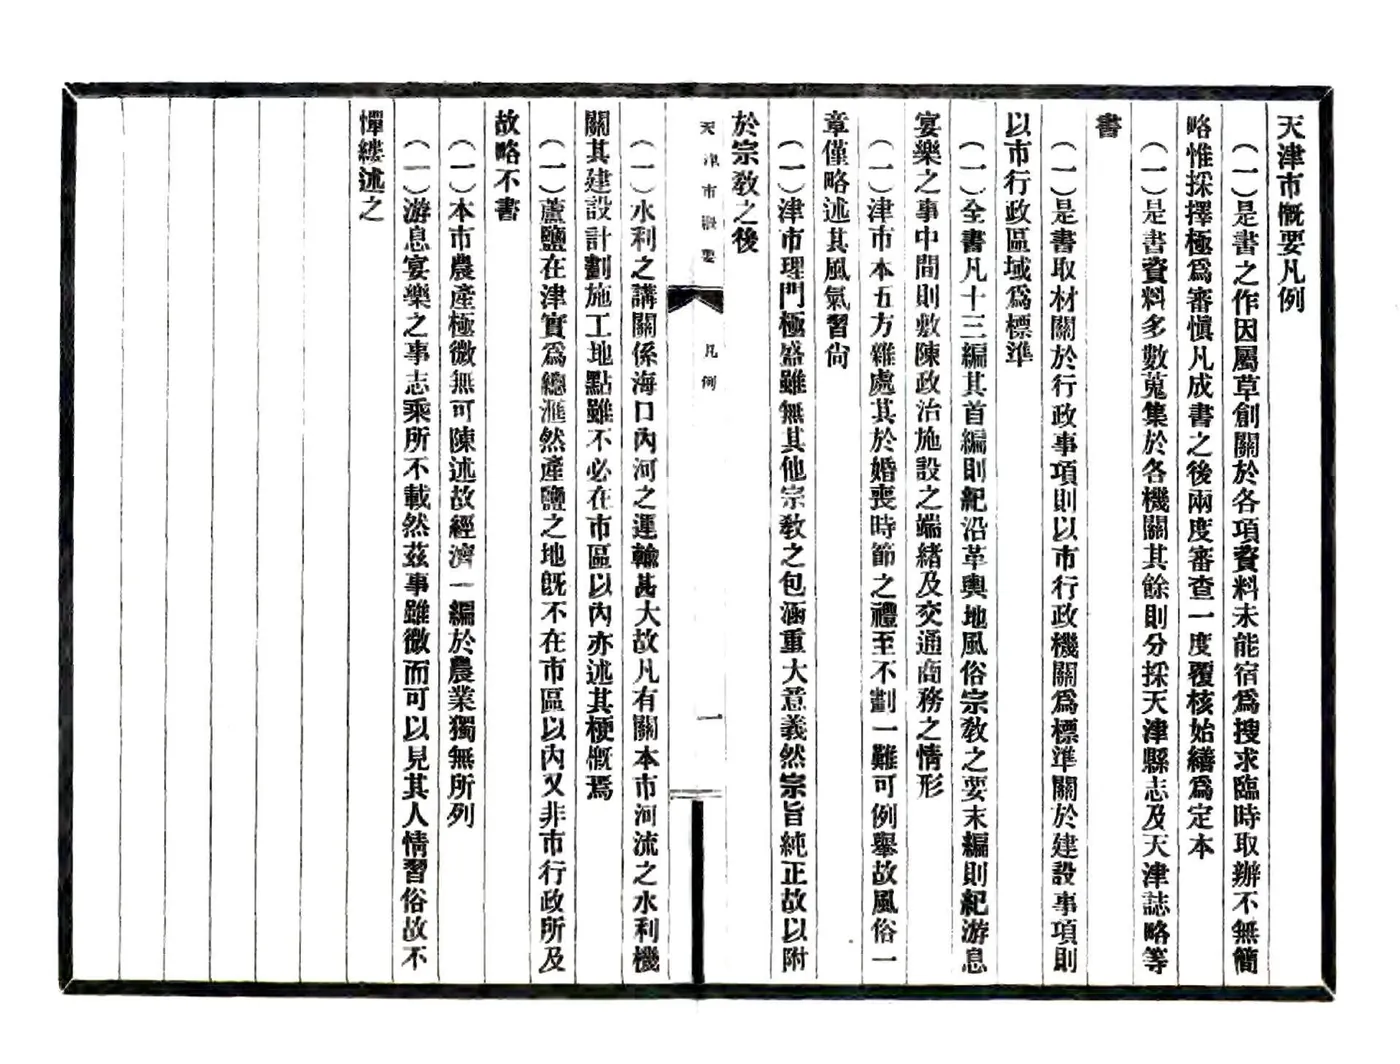 天津市概要凡例
（一）是書之作因屬草創關於各項資料未能宿爲搜求臨時取辦不無簡
略惟採擇極爲審愼凡成書之後兩度審查一度覆核始繕爲定本
（一）是書資料多數蒐集於各機關其餘則分採天津縣志及天津誌略等
書
（一）是書取材關於行政事項則以市行政機關爲標準關於建設事項則
以市行政區域爲標準
（一）全書凡十三編其首編則紀沿革輿地風俗宗敎之要末編則紀游息
宴樂之事中間則敷陳政治施設之端緒及交通商務之情形
（一）津市本五方雜處其於婚喪時節之禮至不劃一難可例舉故風俗一
章僅略述其風氣習尙
（一）津市理門極盛雖無其他宗敎之包涵重大意義然宗旨純正故以附
於宗敎之後
天津市概要
凡例
一
（一）水利之講關係海口內河之運輸甚大故凡有關本市河流之水利機
關其建設計劃施工地點雖不必在市區以內亦述其梗概焉
（一）蘆鹽在津實爲總滙然產鹽之地旣不在市區以內又非市行政所及
故略不書
（一）本市農產極微無可陳述故經濟一編於農業獨無所列
（一）游息宴樂之事志乘所不載然茲事雖微而可以見其人情習俗故不
憚縷述之